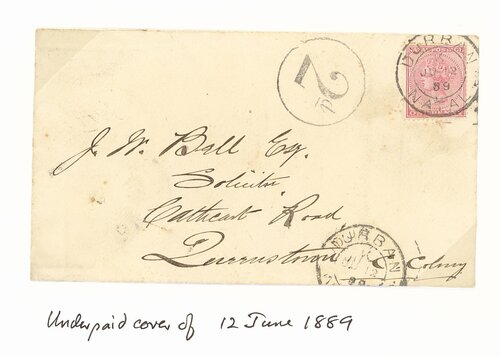 DURBAN
JU 12
89
NATAL
2d
J. W. Bell Esq.
Solicitor
Cathcart Road
Queenstown
Colony
DURBAN
12
89
Underpaid cover of 12 June 1889